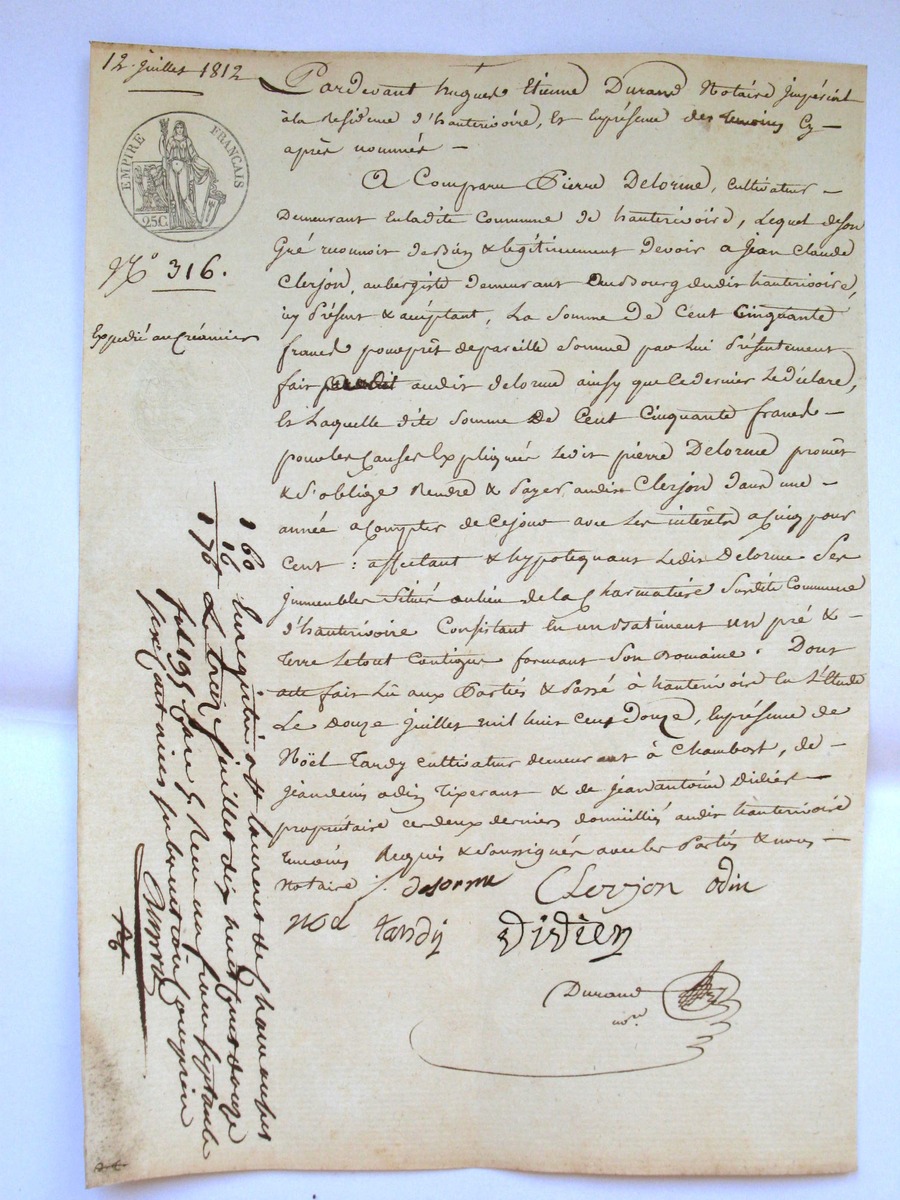 12. juillet 1812
EMPIRE FRANÇAIS
25C.
N.º 316.
Expedié au Créancier
Pardevant hugues Etienne Durand Notaire Impérial
à la Residence d'hauterivoire, Et Enpresence des temoins Cy
après nommés —
A Comparu Pierre Delorme, Cultivateur —
Demeurant Enladite Commune de hauterivoire, Lequel deson
Gré reconnoit debien & legitimement devoir a jean Claude
Clerjon, aubergiste demeurant au Bourg dudit hauterivoire,
icy Présent & acceptant, La Somme De Cent Cinquante
francs pour prêt de pareille Somme par Lui Présentement
fait audit delorme ainsy que Cedernier Ledéclare,
Et Laquelle dite Somme De Cent Cinquante francs —
pour les Causes Expliquées Ledit pierre Delorme promet
& S'oblige Rendre & Payer audit Clerjon dans une —
année a Compter de Cejour avec Les intérêts a Cinq pour
Cent : affectant & hypotequant Ledit Delorme Ses
jmmeubles Situés aulieu de la Charmatière Susdite Commune
d'hauterivoire Consistant En un Batiment un pré & —
Terre Letout Contigus formant Son Domaine. Dont
acte fait Lû aux Parties & Passé à hauterivoire En L'étude
Le Douze juillet mil huit Cent Douze, Enprésence de
Noël Tardy Cultivateur demeurant à Chambost, de —
jean denis odin Tixerant & de jean antoine Didier —
propriétaire cesdeux derniers domiciliés audit hauterivoire
Temoins Requis & Soussignés avec les Parties & nous —
Notaire
p. delorme Clerjon odin
noel tardy Didier
Durand
no.re
1 60
16
1 76
Enregistré à St Laurent de Chamousset
Le treize juillet dix huit Cent douze
fol. 195 Case 5 Reçu un franc Septante
Six Centimes Subvention Comprise